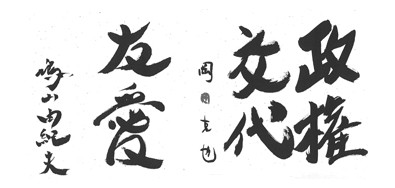 政権
交代
岡田克也
友愛
鳩山由紀夫